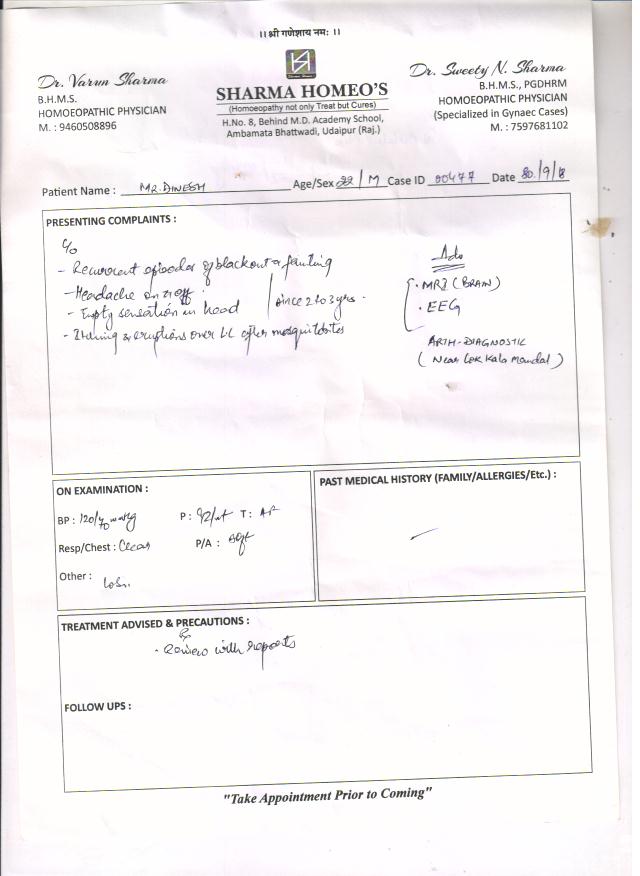 ।। श्री गणेशाय नमः ।।
Dr. Varun Sharma
B.H.M.S.
HOMOEOPATHIC PHYSICIAN
M. : 9460508896
Sharma Homeo
SHARMA HOMEO'S
(Homoeopathy not only Treat but Cures)
H.No. 8, Behind M.D. Academy School,
Ambamata Bhattwadi, Udaipur (Raj.)
Dr. Sweety N. Sharma
B.H.M.S., PGDHRM
HOMOEOPATHIC PHYSICIAN
(Specialized in Gynaec Cases)
M. : 7597681102
Patient Name : MR. DINESH Age/Sex 22 / M Case ID 00477 Date 30/9/18
PRESENTING COMPLAINTS :
C/o
- Recurrent episodes of blackout & fainting
- Headache on & off
- Empty sensation in head
since 2 to 3 yrs.
- Itching & eruptions over LL after mosquito bites
Adv
. MRI (BRAIN)
. EEG
ARTH-DIAGNOSTIC
(Near Lok Kala Mandal)
ON EXAMINATION :
BP : 120/70 mmHg P : 92/mt T : AF
Resp/Chest : Clear P/A : Soft
Other :
PAST MEDICAL HISTORY (FAMILY/ALLERGIES/Etc.) :
TREATMENT ADVISED & PRECAUTIONS :
Rx
. Review with reports
FOLLOW UPS :
"Take Appointment Prior to Coming"